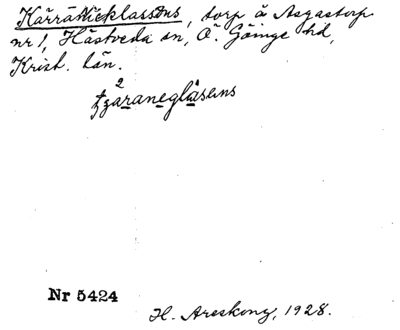 Kärrä Nicklassöns, torp å Asgastorp
nr 1, Hästveda sn, Ö. Göinge hd,
Krist. län.
2
tzaraneglasens
Nr 5424
H. Areskoug, 1928.